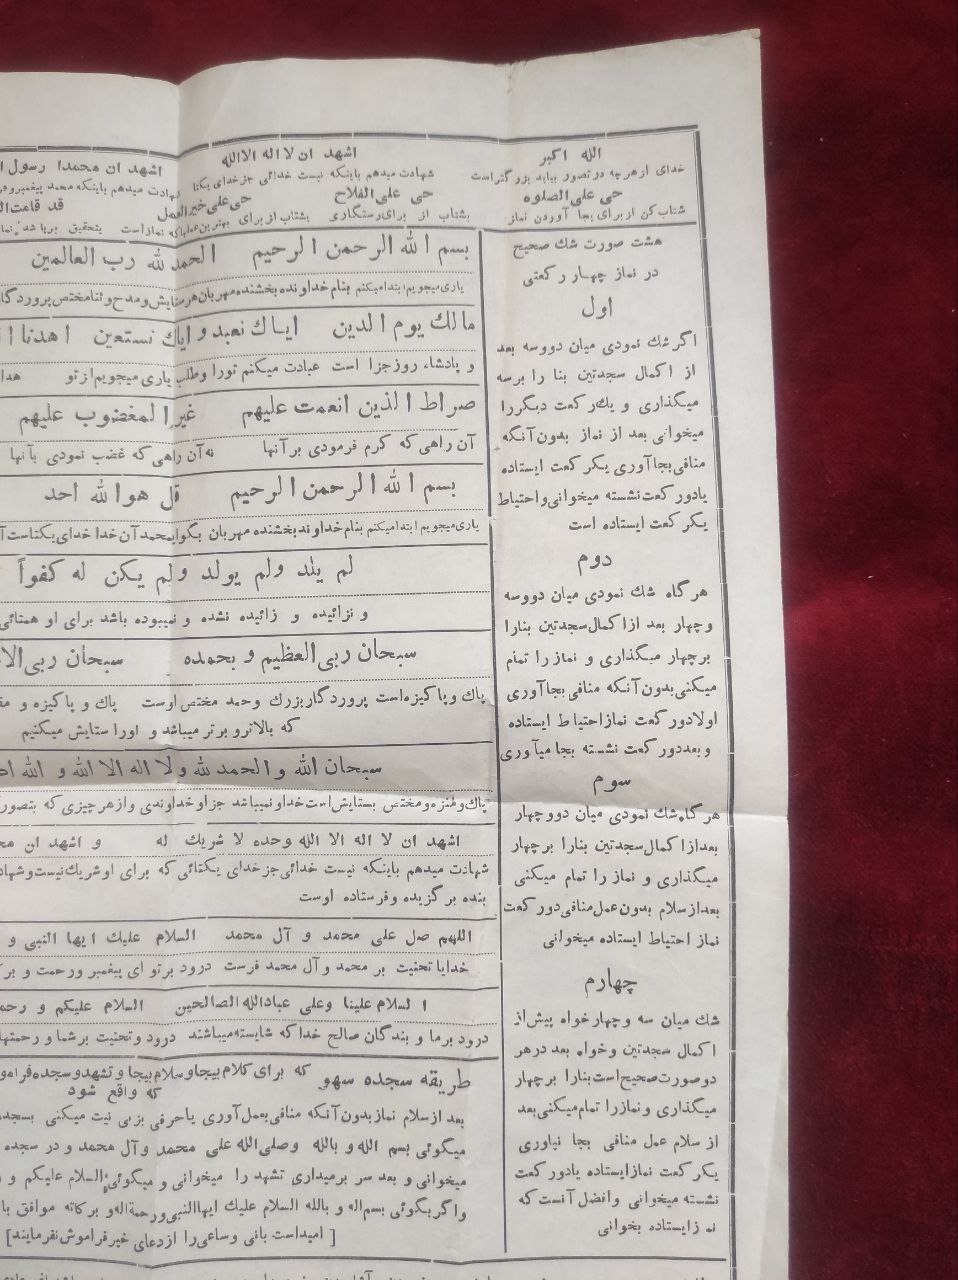 الله اکبر    اشهد ان لا اله الا الله    اشهد ان محمدا رسول
خدای از هر چه در تصور بیاید بزرگتر است    شهادت میدهم باینکه نیست خدائی جز خدای یکتا    شهادت میدهم باینکه محمد پیغمبر
حی علی الصلوه    حی علی الفلاح    حی علی خیر العمل    قد قامت
شتاب کن از برای بجا آوردن نماز    بشتاب از برای رستگاری    بشتاب از برای بهترین عملها که نماز است    بتحقیق برپا شد نماز
هشت صورت شك صحیح
در نماز چهار رکعتی
اول
اگر شك نمودی میان دو و سه بعد
از اکمال سجدتین بنا را بر سه
میگذاری و یك رکعت دیگر را
میخوانی بعد از نماز بدون آنکه
منافی بجا آوری یکرکعت ایستاده
یا دو رکعت نشسته میخوانی و احتیاط
یکرکعت ایستاده است
دوم
هر گاه شك نمودی میان دو و سه
و چهار بعد از اکمال سجدتین بنا را
بر چهار میگذاری و نماز را تمام
میکنی بدون آنکه منافی بجا آوری
اولا دو رکعت نماز احتیاط ایستاده
و بعد دو رکعت نشسته بجا میآوری
سوم
هر گاه شك نمودی میان دو و چهار
بعد از اکمال سجدتین بنا را بر چهار
میگذاری و نماز را تمام میکنی
بعد از سلام بدون عمل منافی دو رکعت
نماز احتیاط ایستاده میخوانی
چهارم
شك میان سه و چهار خواه پیش از
اکمال سجدتین و خواه بعد در هر
دو صورت صحیح است بنا را بر چهار
میگذاری و نماز را تمام میکنی بعد
از سلام عمل منافی بجا نیاوری
یکرکعت نماز ایستاده یا دو رکعت
نشسته میخوانی و افضل آنست که
نماز ایستاده بخوانی
بسم الله الرحمن الرحیم    الحمد لله رب العالمین
یاری میجویم ابتدا میکنم بنام خداوند بخشنده مهربان هر ستایش و مدح و ثنا مختص پروردگار
مالك یوم الدین    ایاك نعبد و ایاك نستعین    اهدنا
و پادشاه روز جزا است    عبادت میکنم تو را و طلب یاری میجویم از تو
صراط الذین انعمت علیهم    غیر المغضوب علیهم
آن راهی که کرم فرمودی بر آنها    نه آن راهی که غضب نمودی بآنها
بسم الله الرحمن الرحیم    قل هو الله احد
یاری میجویم ابتدا میکنم بنام خداوند بخشنده مهربان بگو ایمحمد آن خدا خدای یکتاست
لم یلد ولم یولد ولم یکن له کفواً
و نزائیده و زائیده نشده و نمیبوده باشد برای او همتائی
سبحان ربی العظیم و بحمده    سبحان ربی
پاك و پاکیزه است پروردگار بزرك و حمد مختص اوست    پاك و پاکیزه و
که بالاتر و برتر میباشد و او را ستایش میکنیم
سبحان الله و الحمد لله و لا اله الا الله و الله
پاك و منزه و مختص بستایش است خدا و نمیباشد جز او خداوندی و از هر چیزی که بتصور
اشهد ان لا اله الا الله وحده لا شریك له    و اشهد ان
شهادت میدهم باینکه نیست خدائی جز خدای یکتائی که برای او شریك نیست و
بنده برگزیده و فرستاده اوست
اللهم صل علی محمد و آل محمد    السلام علیك ایها النبی و
خدایا تحنیت بر محمد و آل محمد فرست    درود بر تو ای پیغمبر و رحمت و
السلام علینا و علی عباد الله الصالحین    السلام علیکم و
درود بر ما و بندگان صالح خدا که شایسته میباشند    درود و تحنیت بر شما و
طریقه سجده سهو که برای کلام بیجا و سلام بیجا و تشهد و سجده
که واقع شود
بعد از سلام نماز بدون آنکه منافی بعمل آوری یا حرفی بزنی نیت میکنی
میگوئی بسم الله و بالله وصلی الله علی محمد و آل محمد و در سجده
میخوانی و بعد سر برمیداری تشهد را میخوانی و میگوئی السلام علیکم و
و اگر بگوئی بسم اله و بالله السلام علیك ایها النبی و رحمة اله و برکاته موافق
[ امید است بانی و ساعی را از دعای خیر فراموش نفرمایند ]